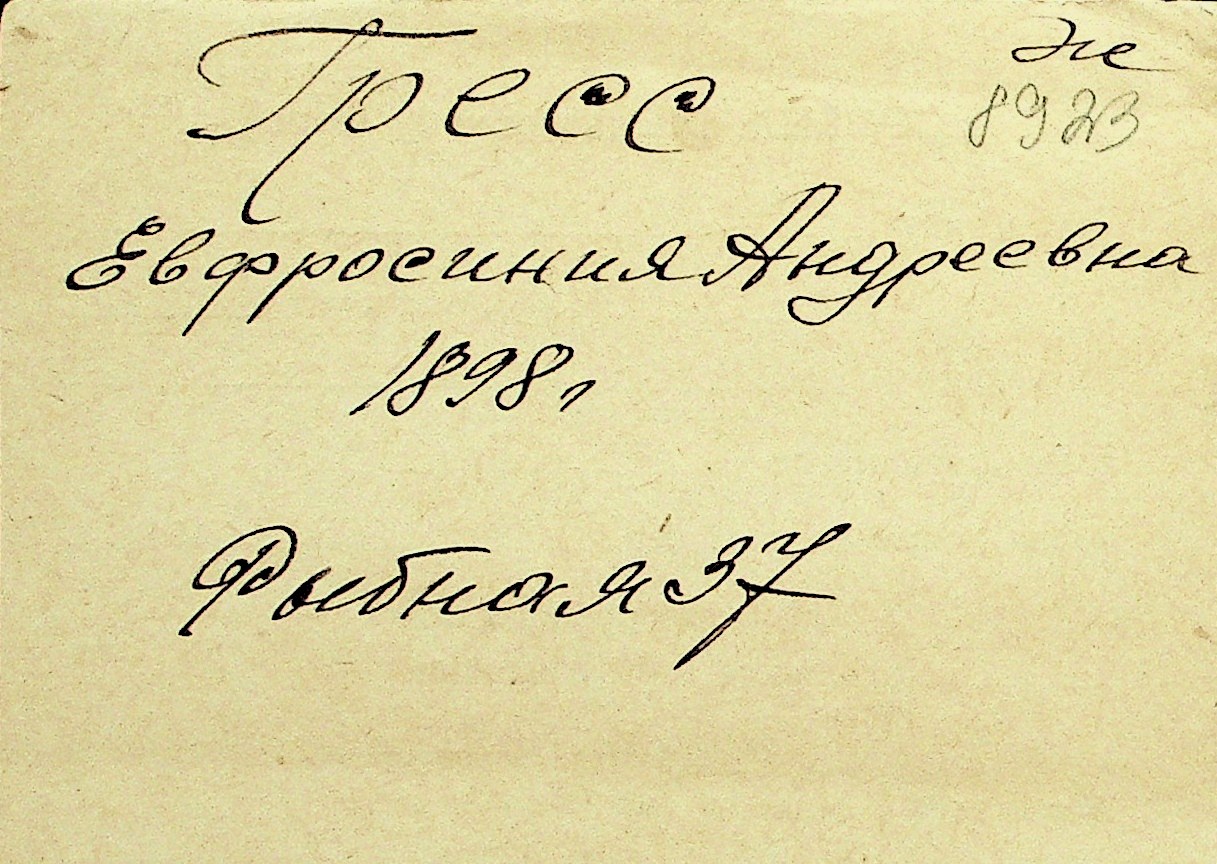 Гресс
же
8923
Евфросиния Андреевна
1898 г
Рыбная 37